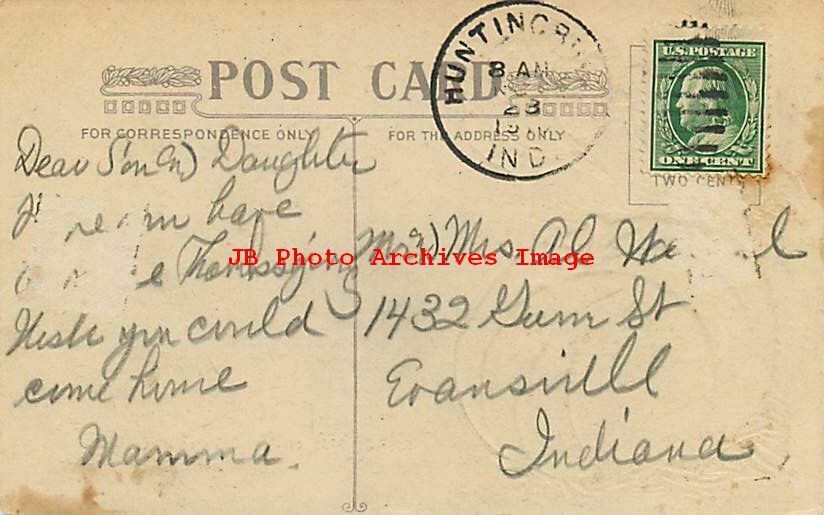 POST CARD
FOR CORRESPONDENCE ONLY
FOR THE ADDRESS ONLY
HUNTINGBU
8 AM
23
IND.
U.S. POSTAGE
ONE CENT
TWO CENTS
Dear Son & Daughter
have
Thanksgiving
Wish you could
come home
Mamma.
JB Photo Archives Image
Mr & Mrs. Al
1432 Gum St
Evansvill
Indiana